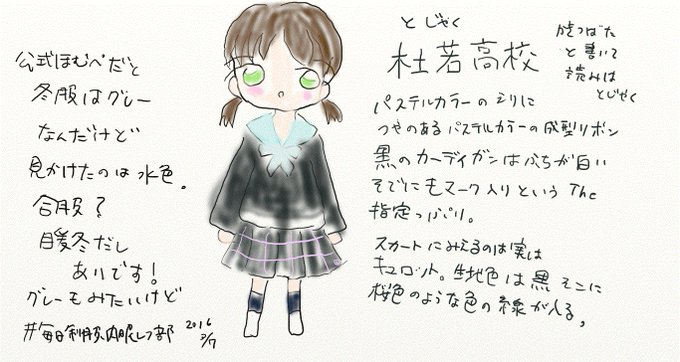 公式ほむぺだと
冬服はグレー
なんだけど
見かけたのは水色。
合服?
暖冬だし
ありです!
グレーもみたいけど
#毎日制服内服レフ部 2016 2/7
とじゃく
杜若高校
かきつばた
と書いて
読みは
とじゃく
パステルカラーのえりに
つやのあるパステルカラーの成型リボン
黒のカーディガンはふちが白い
そでにもマーク入りという The
指定っぷり。
スカートにみえるのは実は
キュロット。生地色は黒 そこに
桜色のような色の線が入る。